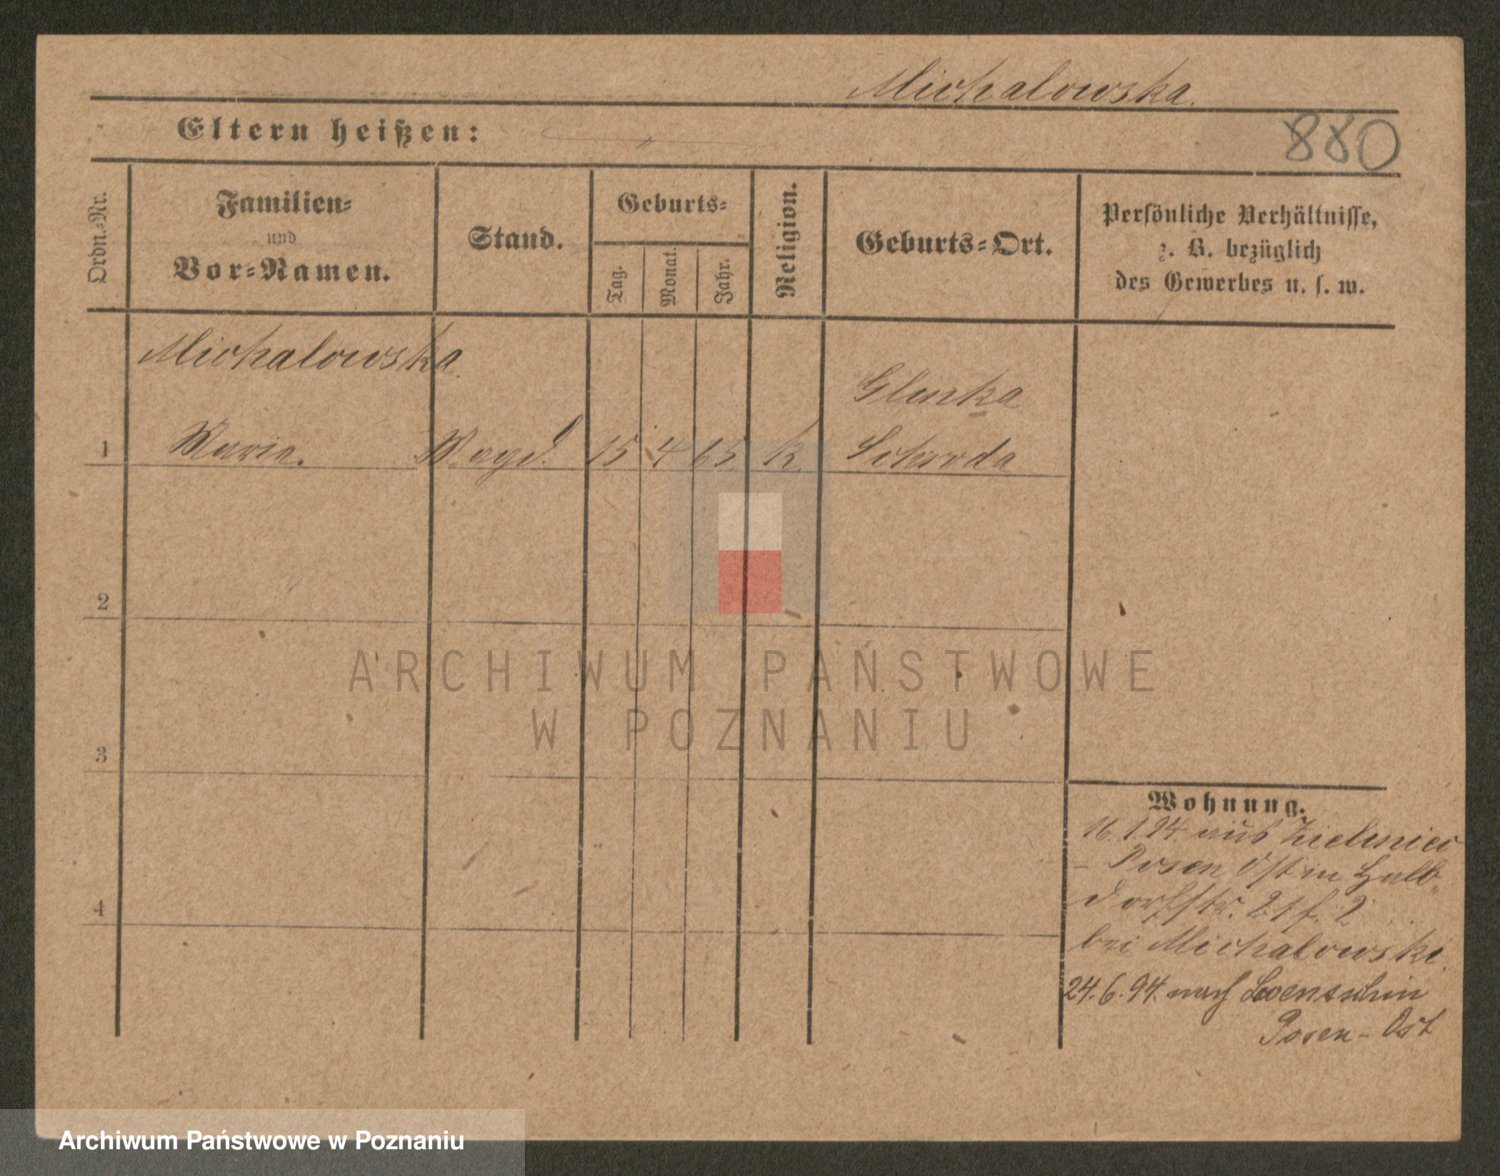 Michalowska
Eltern heißen:
880
Ordn.-Nr.
Familien-
und
Vor-Namen.
Stand.
Geburts-
Tag.
Monat.
Jahr.
Religion.
Geburts-Ort.
Persönliche Verhältnisse,
z. B. bezüglich
des Gewerbes u. s. w.
Michalowska
Glinka
1 Maria. Magd. 15 4 65 k. Schroda
2
3
4
ARCHIWUM PAŃSTWOWE
W POZNANIU
Wohnung.
16.1.94. aus Zieliniec
- Posen Ost in Halb-
dorfstr. 21 f. 2
bei Michalowski.
24.6.94. nach
Posen-Ost
Archiwum Państwowe w Poznaniu